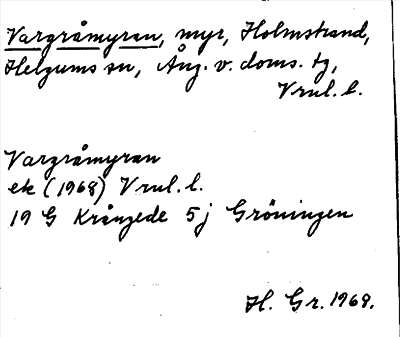 Vargråmyran, myr, Holmstrand,
Helgums sn, Ång. v. doms. tg,
Vrul. l.
Vargråmyran
ek (1968) Vrul. l.
19 G Krångede 5j Gröningen
H. Gr. 1968.